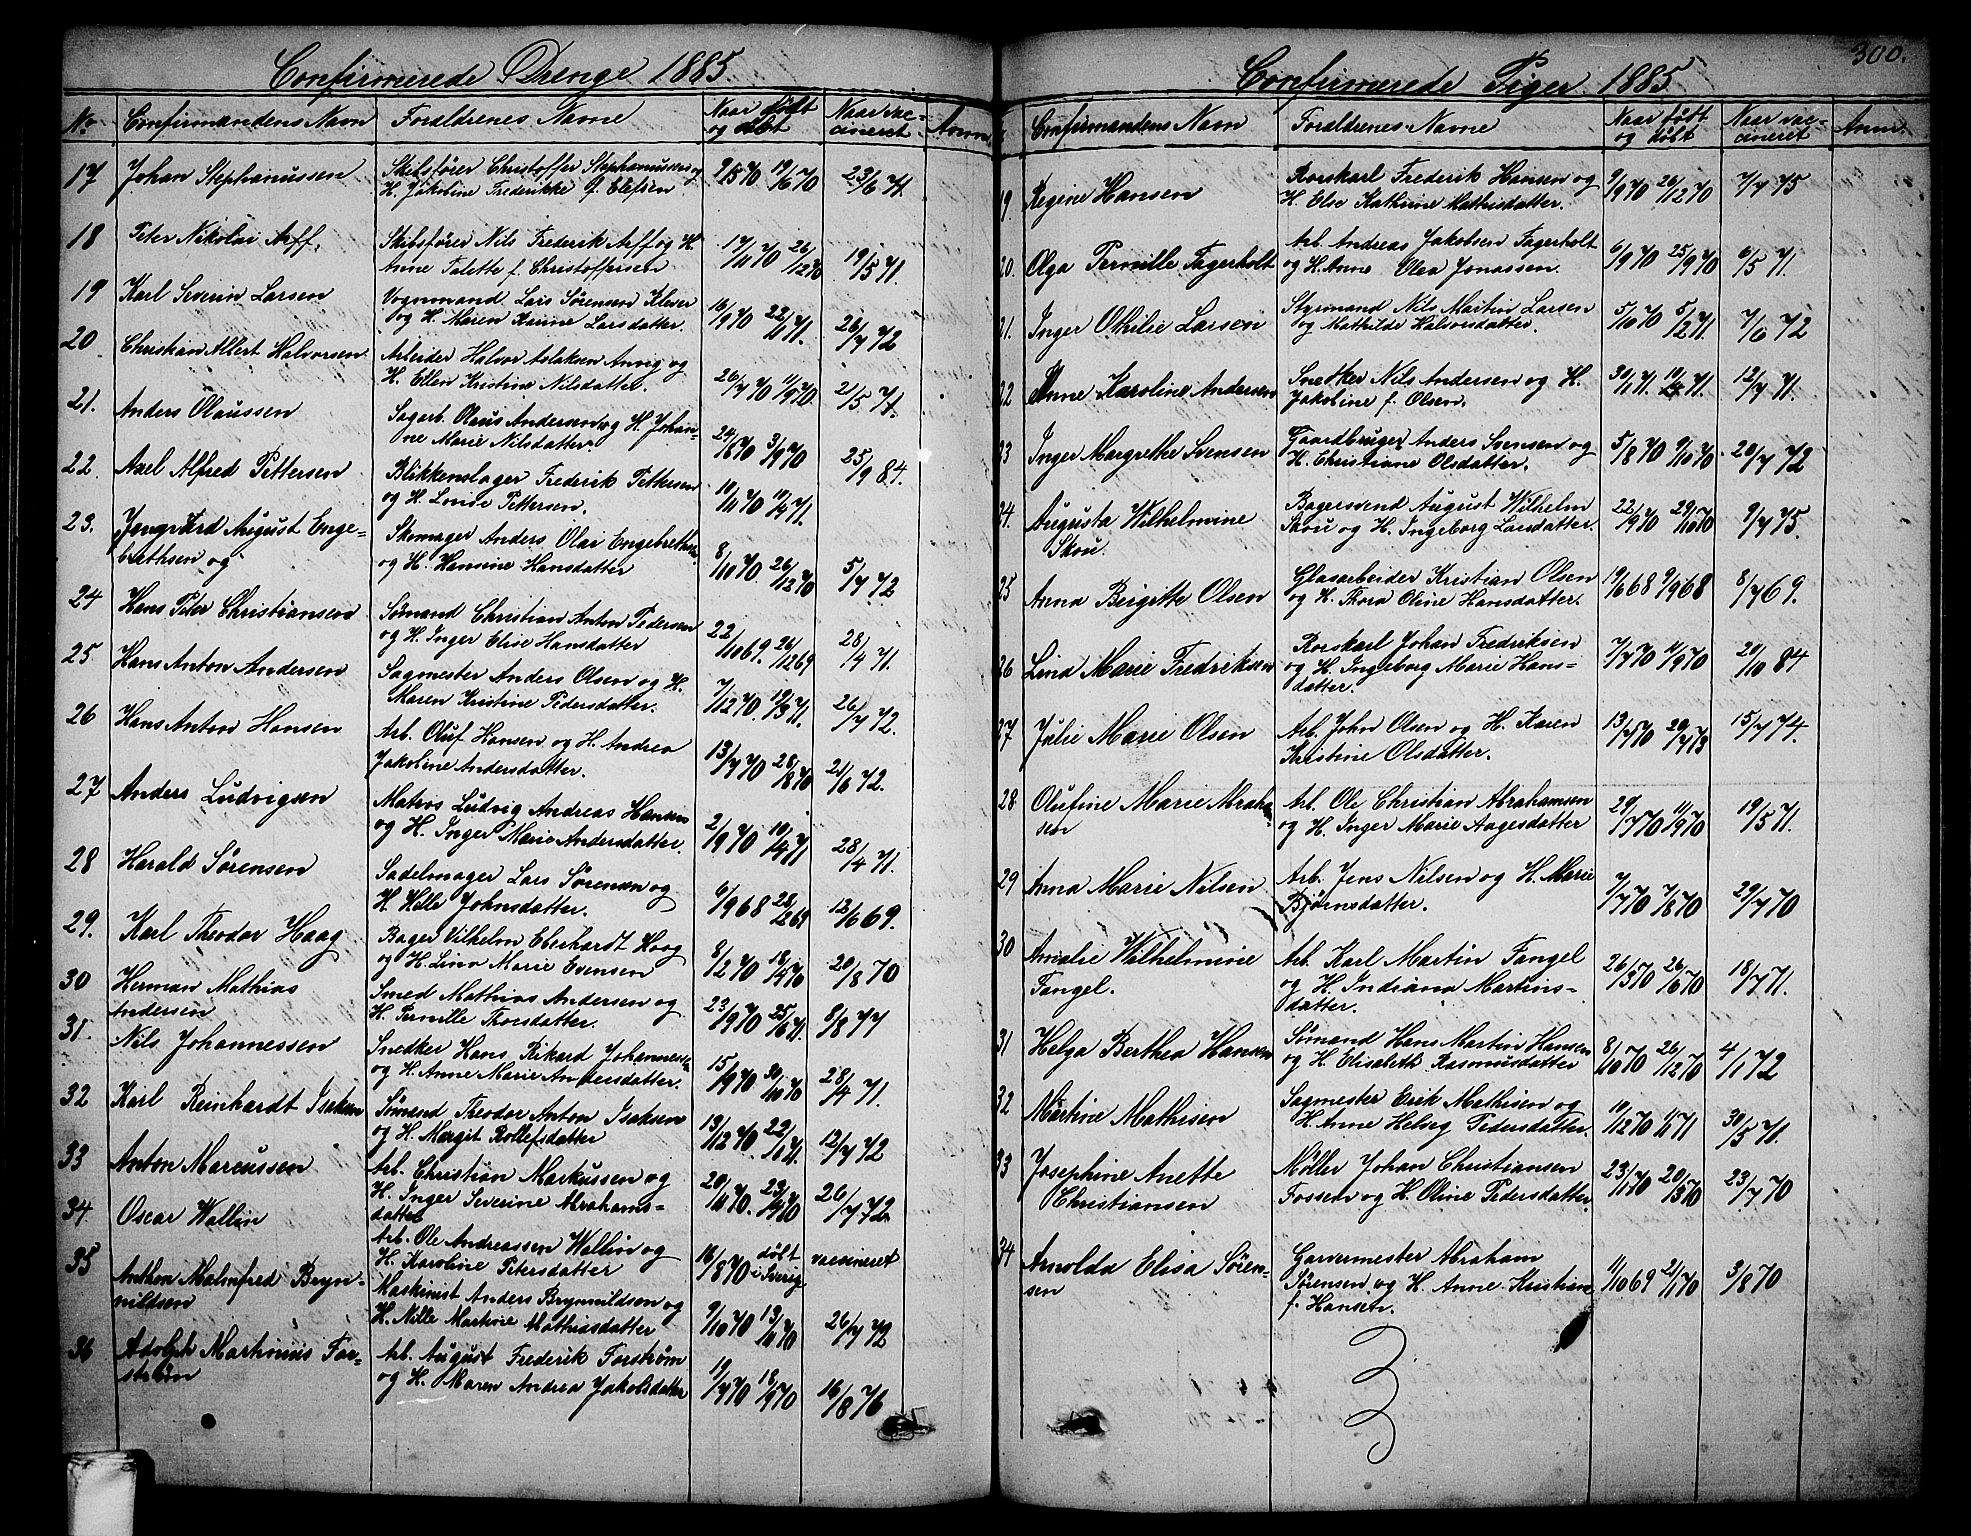 Confirmerede Drenge 1885
No Confirmandens Navn Forældrenes Navne Naar født og døbt Naar vaccineret Anm.
17 Johan Stephanussen Skibsfører Christoffer Stephanussen og
H. Jakobine Frederikke f. Elefsen 2/5 70 19/6 70 23/6 71.
18 Peter Nikolai Arff. Skibsfører Nils Frederik Arff og H.
Anne Talette f. Christoffersen 17/11 70 26/12 70 19/5 71.
19 Karl Severin Larsen Vognmand Lars Sørensen Klever
og H. Maren Karine Larsdatter. 16/9 70 22/1 71. 26/7 72
20 Christian Albert Halvorsen Arbeider Halvor Aslaksen Anvig og
H. Ellen Kristine Nilsdatter. 26/7 70 11/9 70 21/5 71.
21. Anders Olaussen Sagarb. Olaus Andersen og H. Johan-
ne Marie Nilsdatter. 24/6 70 3/9 70 25/9 84.
22 Axel Alfred Pettersen Blikkenslager Frederik Pettersen
og H. Lovise Pettersen. 10/11 70 10/4 71.
23. August Enge-
brethsen og Skomager Anders Olai Engebrethsen
og H. Hansine Hansdatter 8/11 70. 26/12 70 5/7 72
24 Hans Peter Christiansen Sømand Christian Anton Pedersen
og H. Inger Elise Hansdatter 22/10 69. 26/12 69 28/4 71.
25 Hans Anton Andersen Sagmester Anders Olsen og H.
Maren Kristine Pedersdatter. 7/12 70. 19/3 71. 26/7 72.
26 Hans Anton Hansen Arb. Oluf Hansen og H. Andrea
Jakobine Andersdatter. 13/7 70 28/8 70 21/6 72.
27 Anders Ludvigsen Matros Ludvig Andreas Hansen
og H. Inger Marie Andersdatter. 2/9 70 10/4 71 28/4 71.
28 Harald Sørensen Sadelmager Lars Sørensen og
H. Helle Johnsdatter. 6/9 68 28/2 69 12/6 69.
29. Karl Theodor Haag Bager Vilhelm Eberhardt Haag
og H. Lina Marie Evensen 8/2 70 18/4 70 20/8 70
30 Herman Mathias
Andersen Smed Mathias Andersen og
H. Pernille Thorsdatter. 23/9 70 25/6 71. 8/8 77
31. Nils Johannessen Snedker Hans Rikard Johannessen
og H. Anne Marie Andersdatter. 15/9 70 30/10 70 28/4 71.
32 Karl Reinhardt Isaksen Sømand Theodor Anton Isaksen
og H. Margit Rollefsdatter 13/12 70 22/1 71. 12/7 72
33 Anton Marcussen Arb. Christian Markussen og
H. Inger Severine Abrahams-
datter 20/11 70. 26/7 72.
34 Oscar Wallin Arb. Ole Andreassen Wallin og
H. Karoline Petersdatter 16/8 70 døbt i Sverig vaccineret
35 Anthon Malmfred Bryn-
nildsen Maskinist Anders Brynnildsen og
H. Nille Martine Mathiasdatter 9/10 70 13/11 70 26/7 72
36 Adolph Martinius For-
strøm Arb. August Frederik Forstrøm
og H. Maren Andrea Jakobsdatter 19/7 70 18/9 70 16/8 76
300.
Confirmerede Piger 1885
Confirmandens Navn Forældrenes Navne Naar født og døbt Naar vaccineret Anm.
19. Regine Hansen Rorskarl Frederik Hansen og
H. Else Kathrine Mathisdatter. 9/9 70 26/12 70 7/7 75
20. Olga Pernille Fagerholt Arb. Andreas Jakobsen Fagerholt
og H. Anne Olea Jonassen. 6/9 70 25/9 70 6/5 71.
21. Inger Othilie Larsen Styrmand Nils Martin Larsen
og Mathilde Halvorsdatter. 5/10 70 5/2 71. 7/6 72
22 Anne Karoline Andersen Snedker Nils Andersen og H.
Jakobine f. Olsen. 30/1 71. 10/4 71. 12/7 71.
23 Inger Margrethe Svensen Gaardbruger Anders Svensen og
H. Christiane Olsdatter. 5/8 70 9/10 70 20/7 72
24. Augusta Wilhelmine
Skou. Bagersvend August Wilhelm
Skou og H. Ingeborg Larsdatter. 22/9 70 29/10 70 9/7 75.
25 Anna Birgitte Olsen Glasarbeider Kristian Olsen
og H. Thora Oline Hansdatter. 19/6 68 9/9 68 8/7 69.
26 Lina Marie Fredriksen Rorskarl Johan Fredriksen
og H. Ingeborg Marie Hans-
datter. 7/7 70 11/9 70 20/10 84
27 Julie Marie Olsen Arb. John Olsen og H. Karen
Kristine Olsdatter. 13/7 70 20/7 73 15/7 74.
28. Olufine Marie Abraham-
sen Arb. Ole Christian Abrahamsen
og H. Inger Marie Aagesdatter 29/7 70 11/9 70 19/5 71.
29 Anna Marie Nilsen Arb. Jens Nilsen og H. Marie
Bjørnsdatter. 7/7 70 7/8 70 29/7 70
30 Amalie Wilhelmine
Fangel. Arb. Karl Martin Fangel
og H. Indiana Martins-
datter. 26/3 70 26/6 70 18/7 71.
31 Helga Berthea Hansen Sømand Hans Martin Hansen
og H. Elisabeth Rasmusdatter 8/10 70 26/12 70 4/1 72
32 Martine Mathisen Sagmester Erik Mathisen og
H. Anne Helseg Pedersdatter. 10/12 70 1/1 71 30/5 71.
33 Josephine Anette
Christiansen Møller Johan Christiansen
Fossen og H. Oline Pedersdatter 23/1 70 20/3 70 23/7 70
34 Arnolda Elisa Søren-
sen Garvermester Abraham
Sørensen og H. Anne Kristine
f. Hansen. 11/10 69 21/1 70 3/8 70